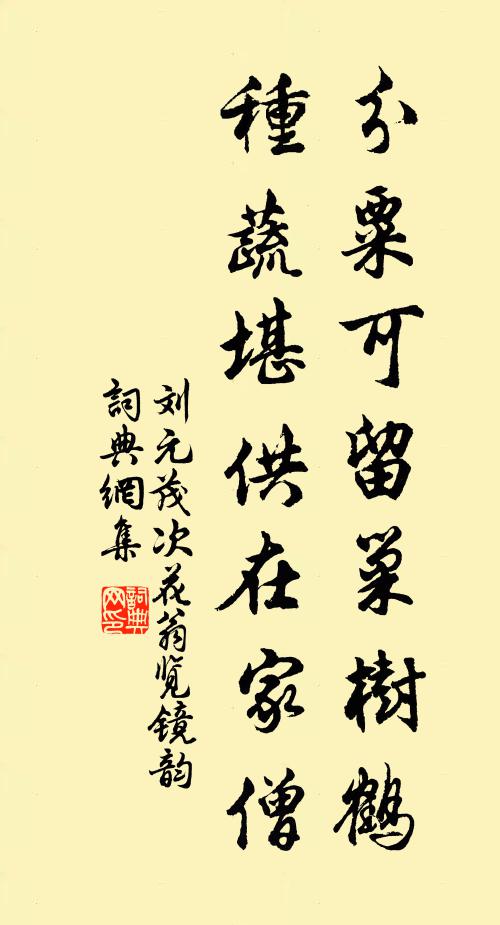 分粟可留巢樹鶴
種蔬堪供在家僧
刘元茂次花翁览镜韵
詞典網集
詞典网印